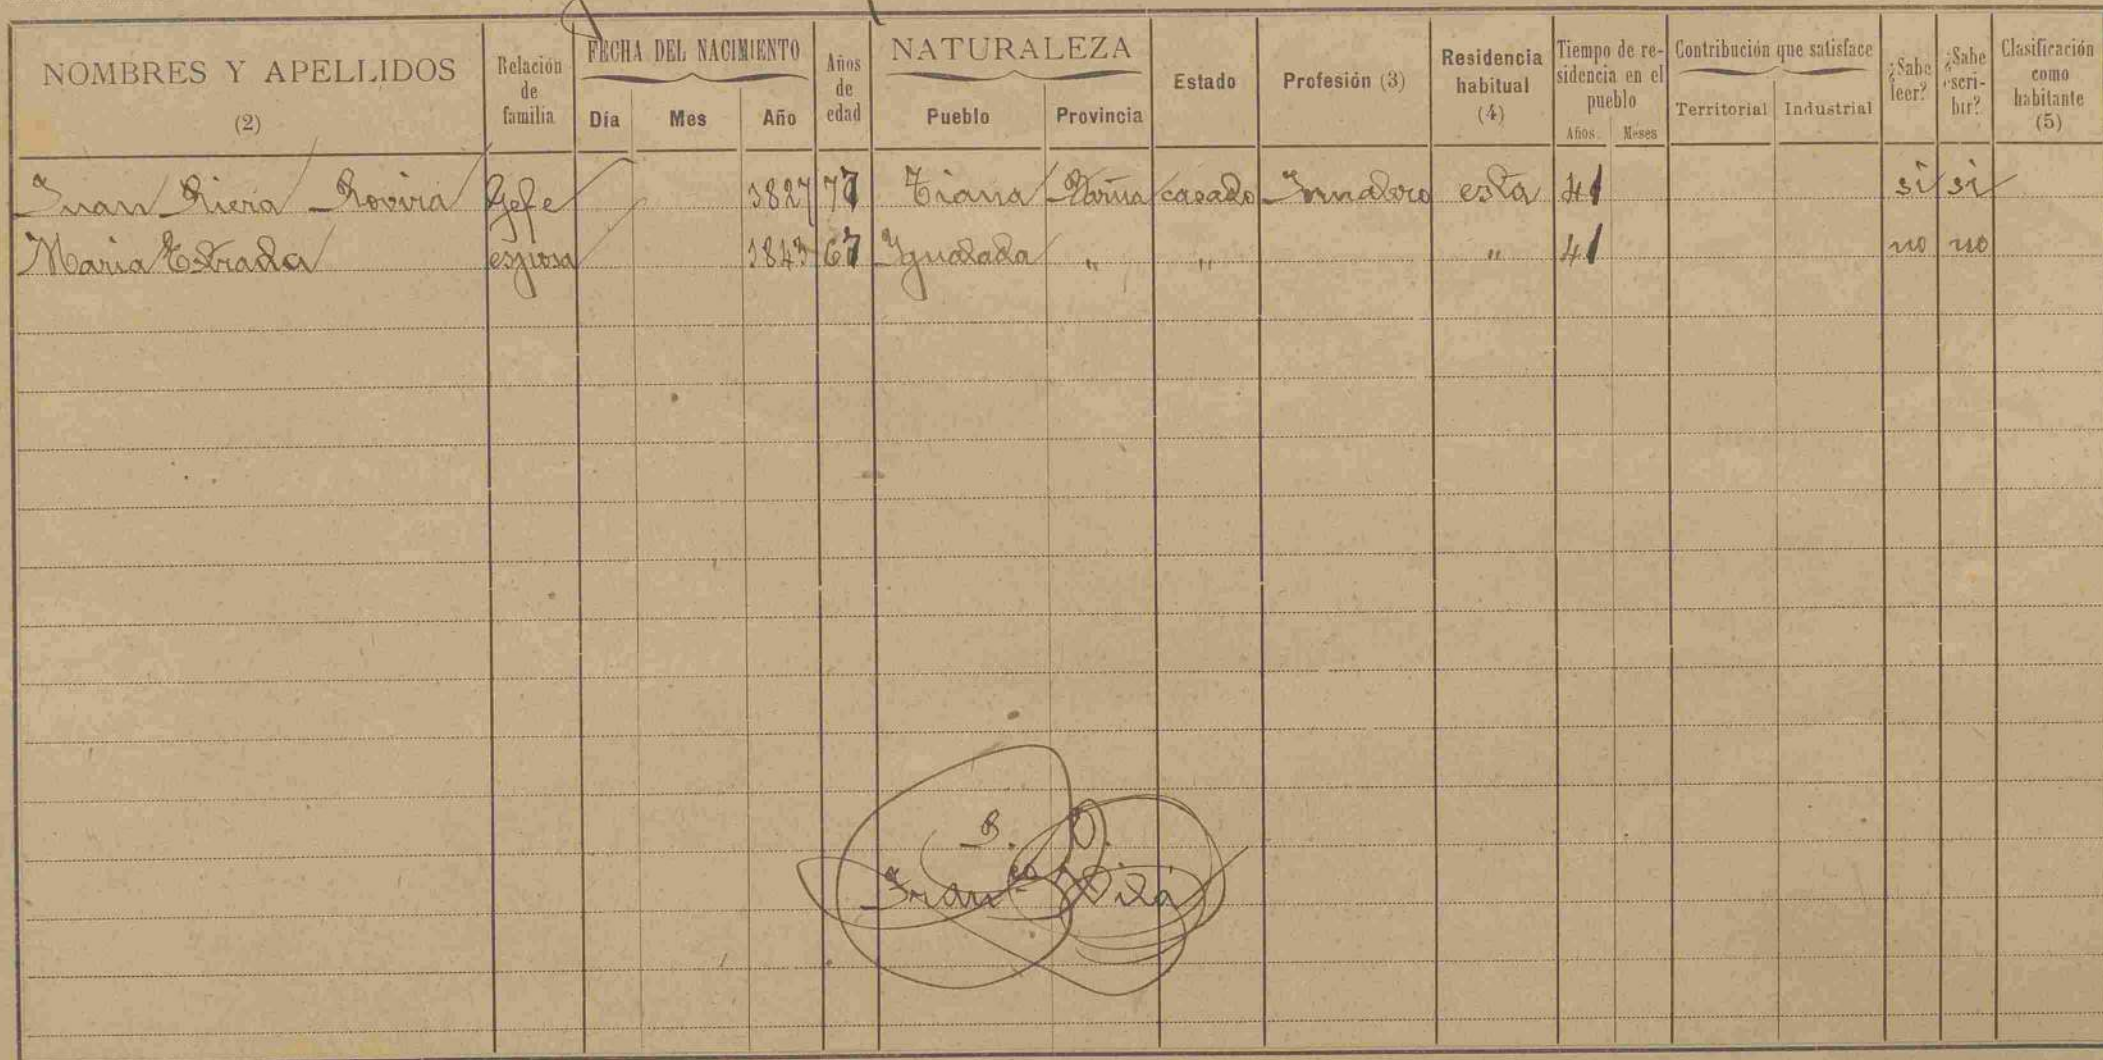 NOMBRES Y APELLIDOS (2) Relación de familia FECHA DEL NACIMIENTO Día Mes Año Años de edad NATURALEZA Pueblo Provincia Estado Profesión (3) Residencia habitual (4) Tiempo de residencia en el pueblo Años Meses Contribución que satisface Territorial Industrial ¿Sabe leer? ¿Sabe escribir? Clasificación como habitante (5)
Juan Riera Rovira Gefe 1827 77 Tiana casado Jornalero esta 41 si si
Maria Estrada esposa 1843 67 Ygualada " " " 41 no no
Fran.co Vilá